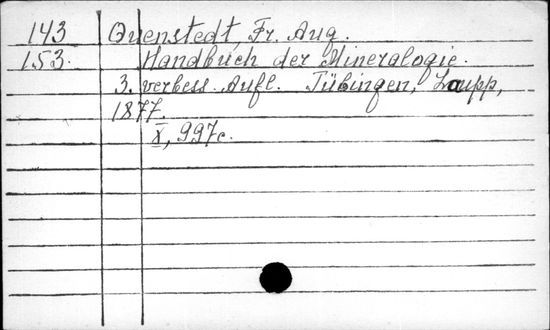 143 Quenstedt, Fr. Aug.
153. Handbuch der Mineralogie.
3. verbess. Aufl. Tübingen, Laupp,
1877.
X, 997c.